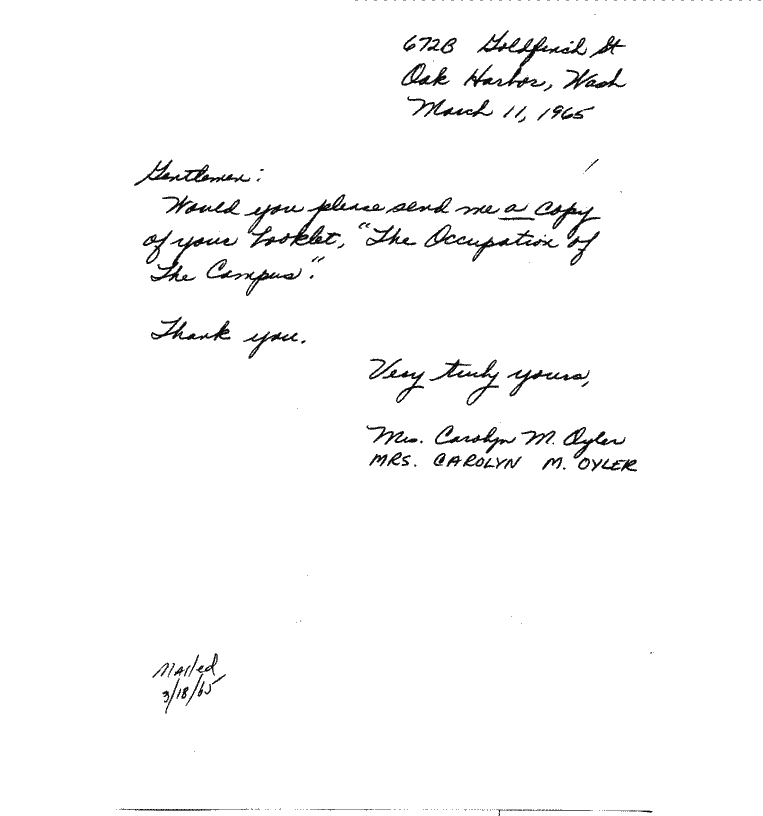 672B Goldfinch St
Oak Harbor, Wash
March 11, 1965
Gentlemen:
Would you please send me a copy
of your booklet, "The Occupation of
The Campus".
Thank you.
Very truly yours,
Mrs. Carolyn M. Oyler
MRS. CAROLYN M. OYLER
Mailed
3/18/65